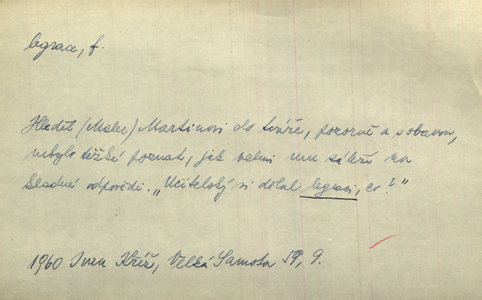 legrace, f.
Hleděl (Malec) Martinovi do tváře, pozorně a s obavou,
nebylo těžké poznat, jak velmi mu záleží na
kladné odpovědi. „Učitelský si dělal legraci, co?"
1960 Ivan Kříž, Velká Samota 59, 9.